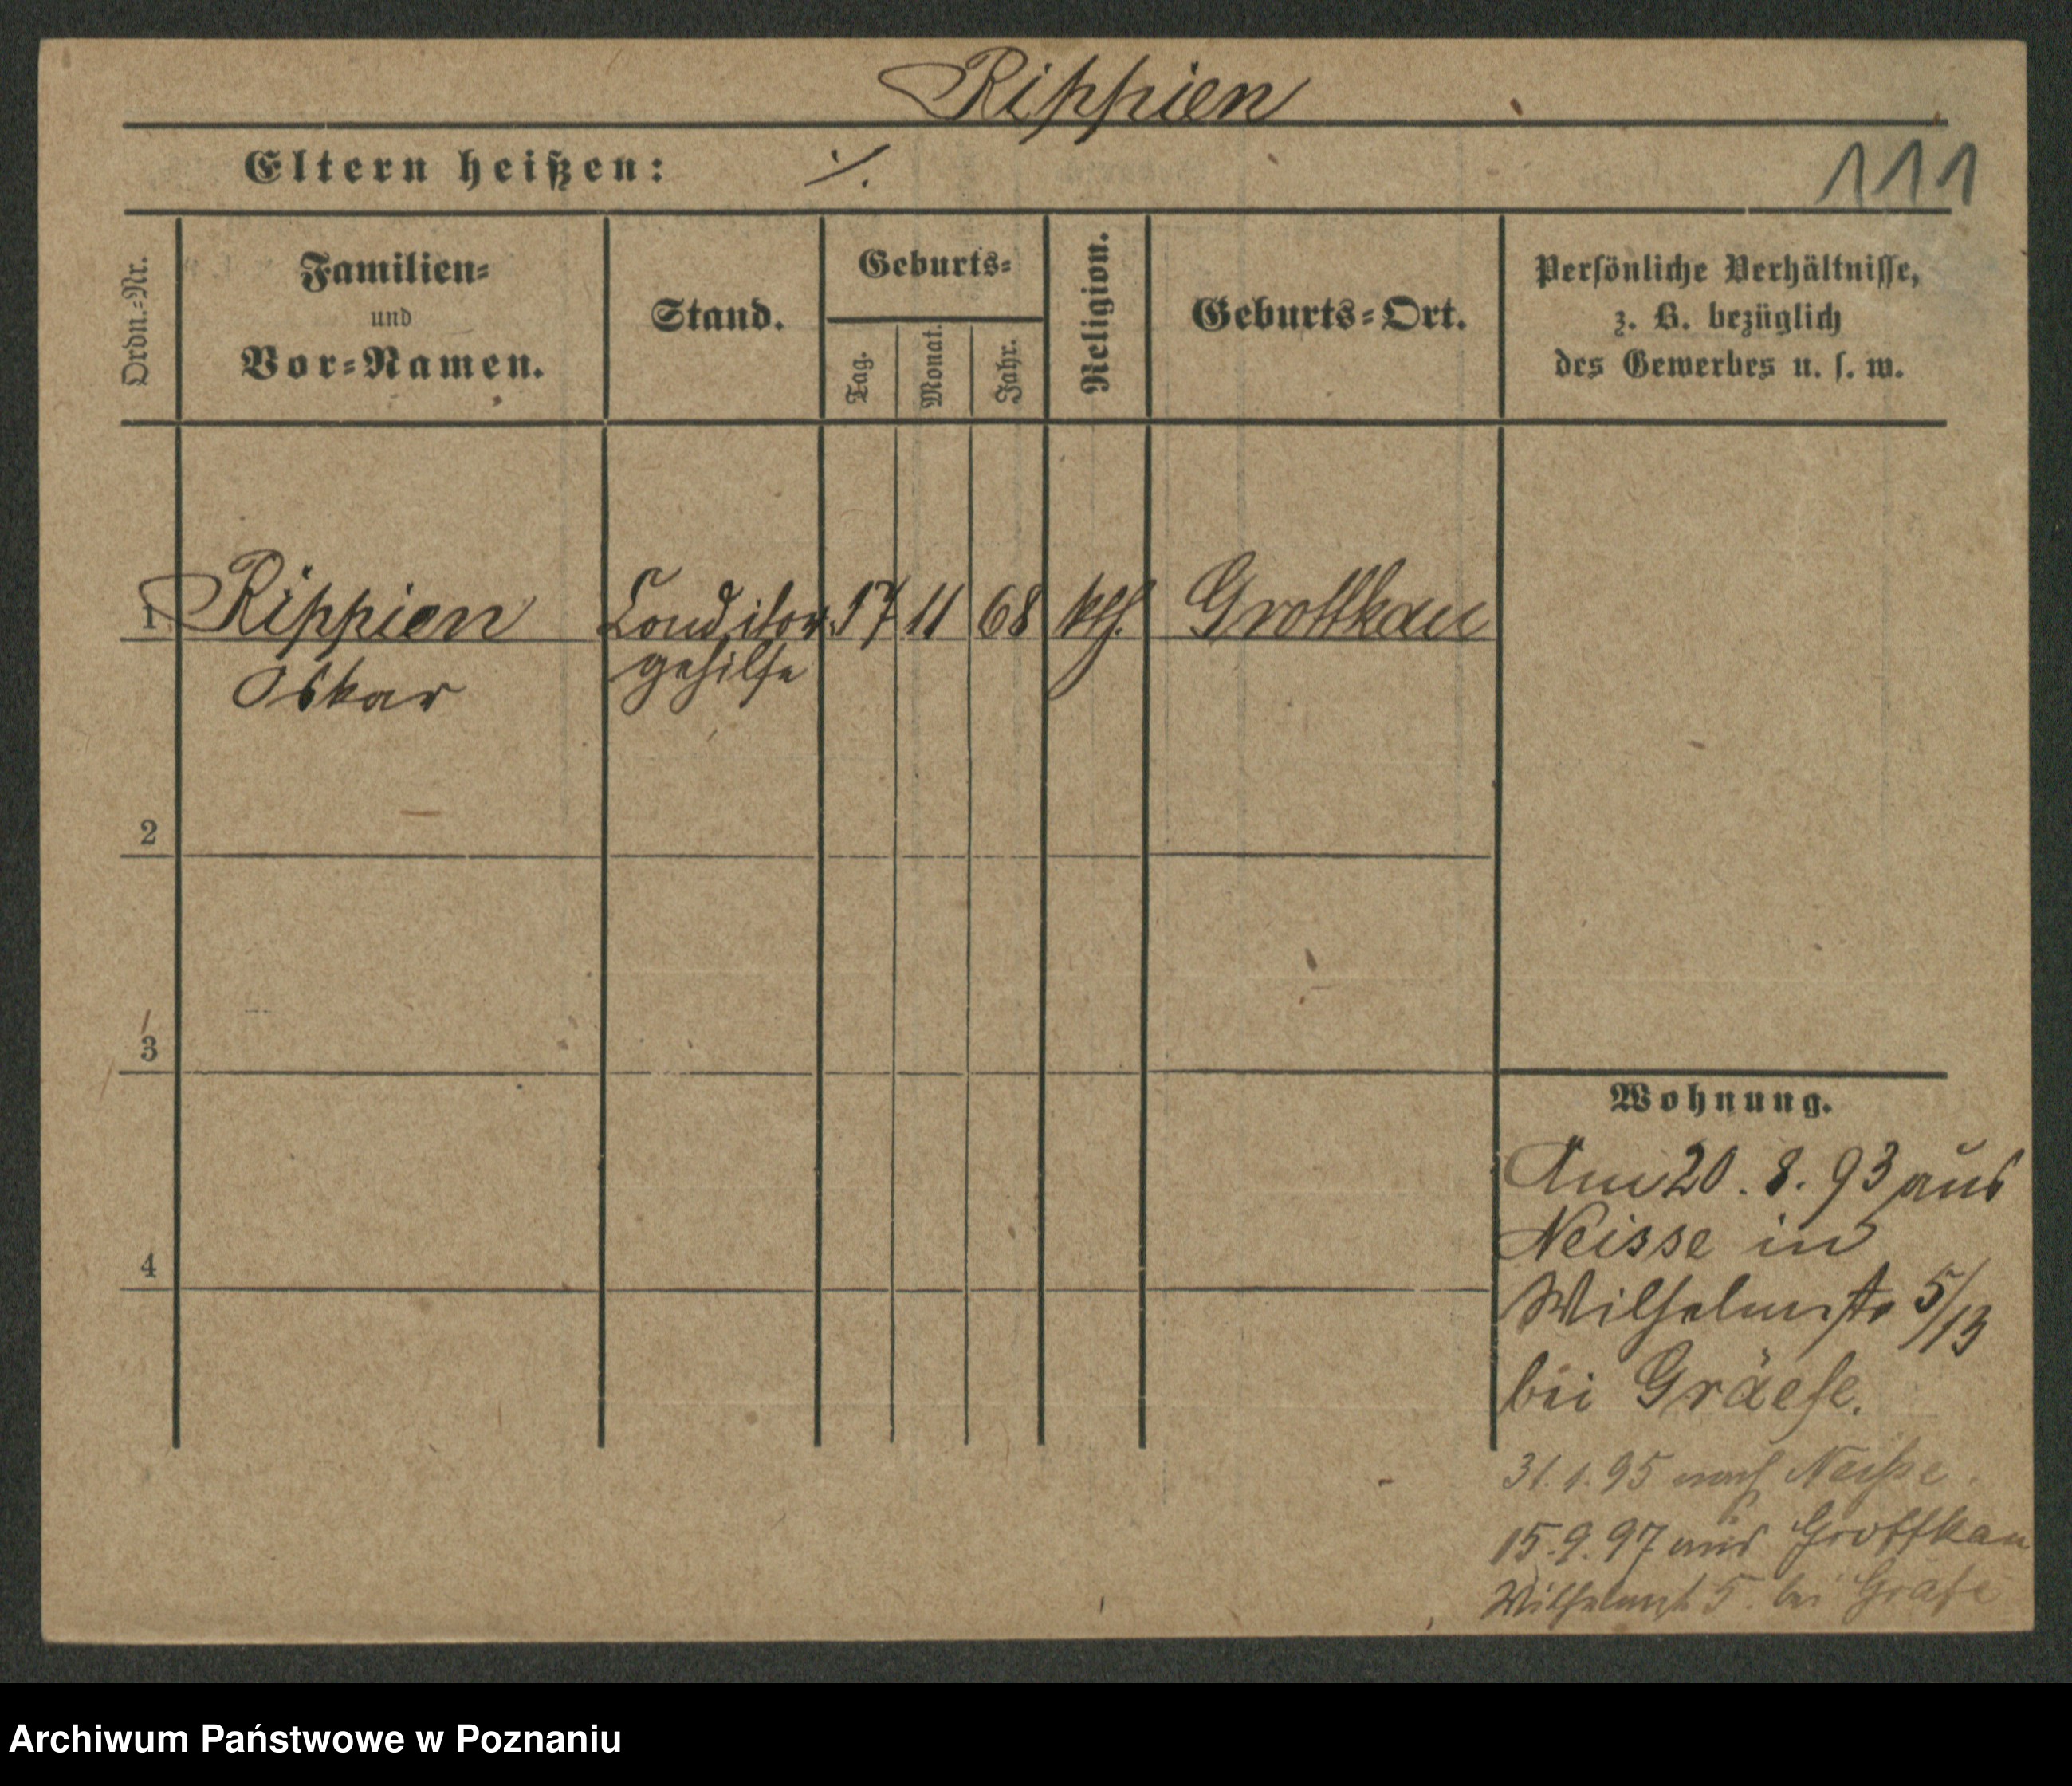 Rippien
Eltern heißen: ./.
111
Ordn.-Nr.
Familien-
und
Vor-Namen.
Stand.
Geburts-
Tag.
Monat.
Jahr.
Religion.
Geburts-Ort.
Persönliche Verhältnisse,
z. B. bezüglich
des Gewerbes u. s. w.
1 Rippien Conditor 17 11 68 kth. Grottkau
Oskar gehilfe
2
3
4
Wohnung.
Am 20. 8. 93 aus
Neisse in
Wilhelmstr 5/13
bei Gräefe.
31. 1. 95 nach Neiße.
15. 9. 97 aus Grottkau
Wilhelmst 5. bei Gräfe
Archiwum Państwowe w Poznaniu